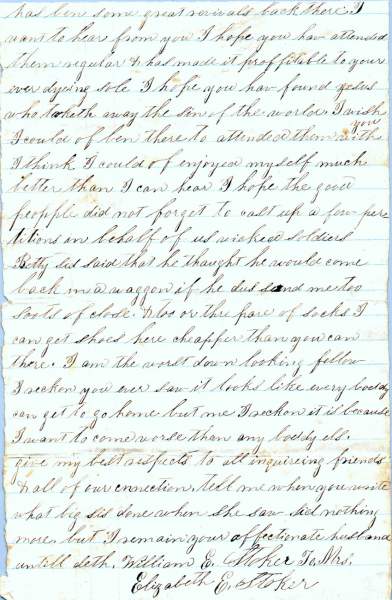 has ben some great revivals back there. I
want to hear from you I hope you hav attended
them regular & has made it proffitible to your
ever dyeing sole I hope you hav found jesus
who taketh away the sin of the world I wish
I could of ben there to attended them with you
I think I could of enjoyed myself much
better than I can hear I hope the good
peopple did not forget to cast up a few per
titions in behalf of us wicked soldiers
Betty sis said that he thought he would come
back in a waggon if he dus send me too
soots of close. & too or thre pare of socks I
can get shoes here cheapper than you can
there. I am the worst down looking fellow
I reckon you ever saw it looks like every boddy
can get to go home but me I reckon it is because
I want to come worse than any boddy els.
give my best respects to all inquireing friends
& all of our cnnection. tell me when you write
what big sis done when she saw sid nothing
more. but I remain your affectionate husband
untill deth. William E. Stoker To Mrs.
Elizabeth E. Stoker